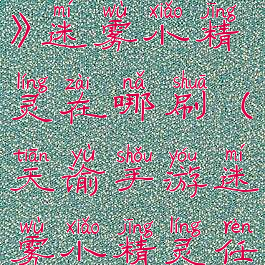 mí wù xiǎo jīng
》迷雾小精
líng zài nǎ shuā
灵在哪刷（
tiān yù shǒu yóu mí
天谕手游迷
wù xiǎo jīng líng rèn
雾小精灵任